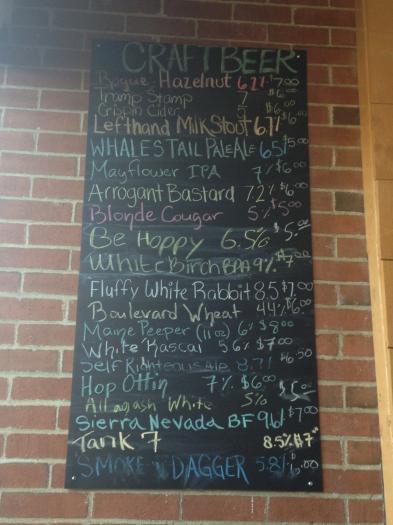 CRAFT BEER
Rogue Hazelnut 6.2% $7.00
Tramp Stamp 7 $6.00
Crispin Cider 5 $6.00
Lefthand Milk Stout 6.1% $6.00
WHALES TAIL PALE ALE 6.5 $5.00
Mayflower IPA 7% $6.00
Arrogant Bastard 7.2% $6.00
Blonde Cougar 5% $5.00
Be Hoppy 6.5% $5.00
White Birch 9% $7.00
Fluffy White Rabbit 8.5 $7.00
Boulevard Wheat 4.4% $6.00
Maine Peeper (11oz) 6% $8.00
White Rascal 5.6% $7.00
Self Righteous Ale 8.7% $6.50
Hop Ottin 7% $6.00
Allagash White 5%
Sierra Nevada BF $7.00
Tank 7 8.5% $7
SMOKE & DAGGER 5.8%